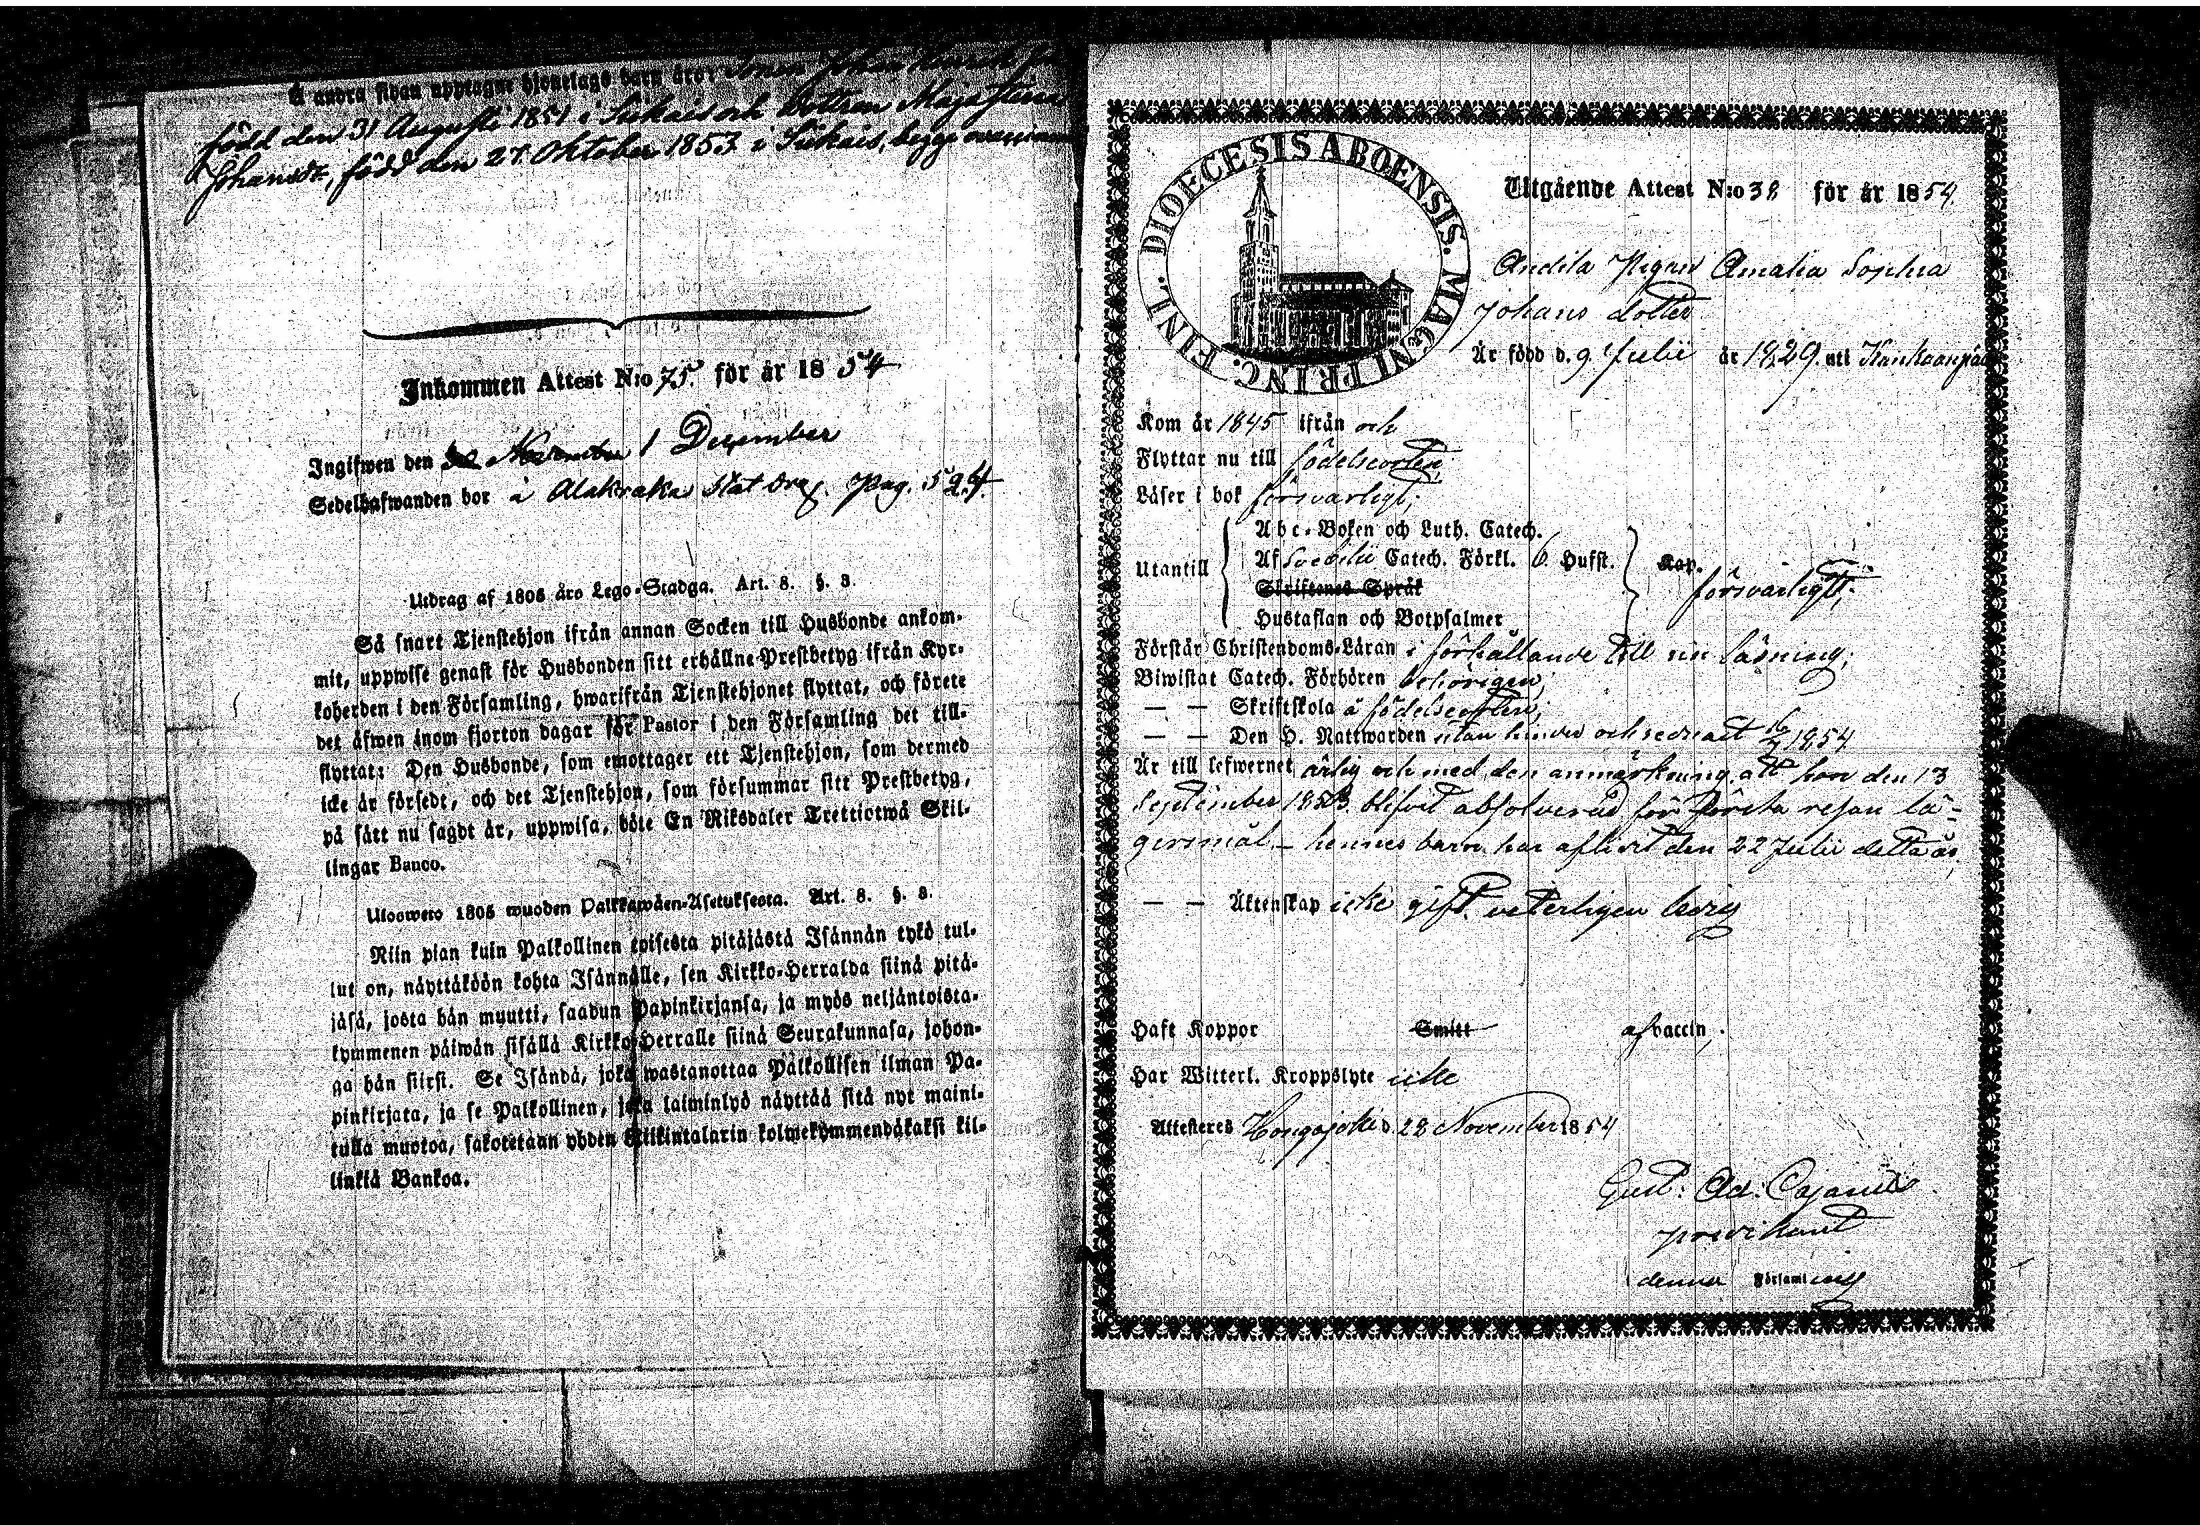 Å andra sidan upptagne hjonelags barn äro: Sonen Johan Henrik
född den 31 Augusti 1851 i Sukais och Dottren Maja Stina
född den 27 Oktober 1853 i Sukais, begge
Inkommen Attest N:o 75. för år 1854
Ingifwen den November 1 December
Sedelhafwanden bor å Alakraka Stat Drg. Pag. 524.
Utdrag af 1805 års Lego-Stadga. Art. 8. §. 3.
Så snart Tjenstehjon ifrån annan Socken till Husbonde ankom-
mit, uppwise genast för Husbonden sitt erhållne Prestbetyg ifrån Kyr-
koherden i den Församling, hwarifrån Tjenstehjonet flyttat, och förete
det äfwen inom fjorton dagar för Pastor i den Församling det till-
flyttat: Den Husbonde, som emottager ett Tjenstehjon, som dermed
icke är försedt, och det Tjenstehjon, som försummar sitt Prestbetyg,
på sätt nu sagdt är, uppwisa, böte En Riksdaler Trettiotwå Skil-
lingar Banco.
Ulosweto 1805 wuoden Palkkawäen-Asetuksesta. Art. 8. §. 3.
Niin pian kuin Palkollinen toisesta pitäjästä Isännän tykö tul-
lut on, näyttäköön kohta Isännälle, sen Kirkko-Herralda siinä pitä-
jäsä, josta hän muutti, saadun Papinkirjansa, ja myös neljäntoista-
kymmenen päiwän sisällä Kirkko-Herralle siinä Seurakunnasa, johon-
ga hän siirsi. Se Isändä, joka wastanottaa Palkollisen ilman Pa-
pinkirjata, ja se Palkollinen, joka laiminlyö näyttää sitä nyt maini-
tulla muotoa, sakotetaan yhden Riikintalarin kolmekymmendäkaksi kil-
linkiä Bankoa.
DIOECESIS ABOENSIS. MAGNI PRINC. FINL.
Utgående Attest N:o 38 för år 1854
Andila Pigan Amalia Sophia
Johans dotter
Är född d. 9 Julii år 1829. uti Kankaanpää
Kom år 1845 ifrån och
Flyttar nu till födelseorten;
Läser i bok försvarligt;
Abc-Boken och Luth. Catech.
Utantill Af Svebilii Catech. Förkl. 6. Hufst. Kap. försvarligt;
Skriftenes Språk
Hustaflan och Botpsalmer
Förstår Christendoms-Läran i förhållande till sin läsning;
Biwistat Catech. Förhören behörigen;
— — Skriftskola å födelseorten;
— — Den H. Nattwarden utan hinder och sednast 16/7 1854
Är till lefwernet ärlig och med den anmärkning, att hon den 13
September 1853 blifvit absolverad för första resan lä-
gersmål — hennes barn har aflidit den 22 Julii detta år,
— — Äktenskap icke gift. veterligen ledig
Haft Koppor Smitt af vaccin;
Har Witterl. Kroppslyte icke
Attesteras Hongojoki d. 28 November 1854
Gust. Ad. Cajanus
predikant
denna Församling